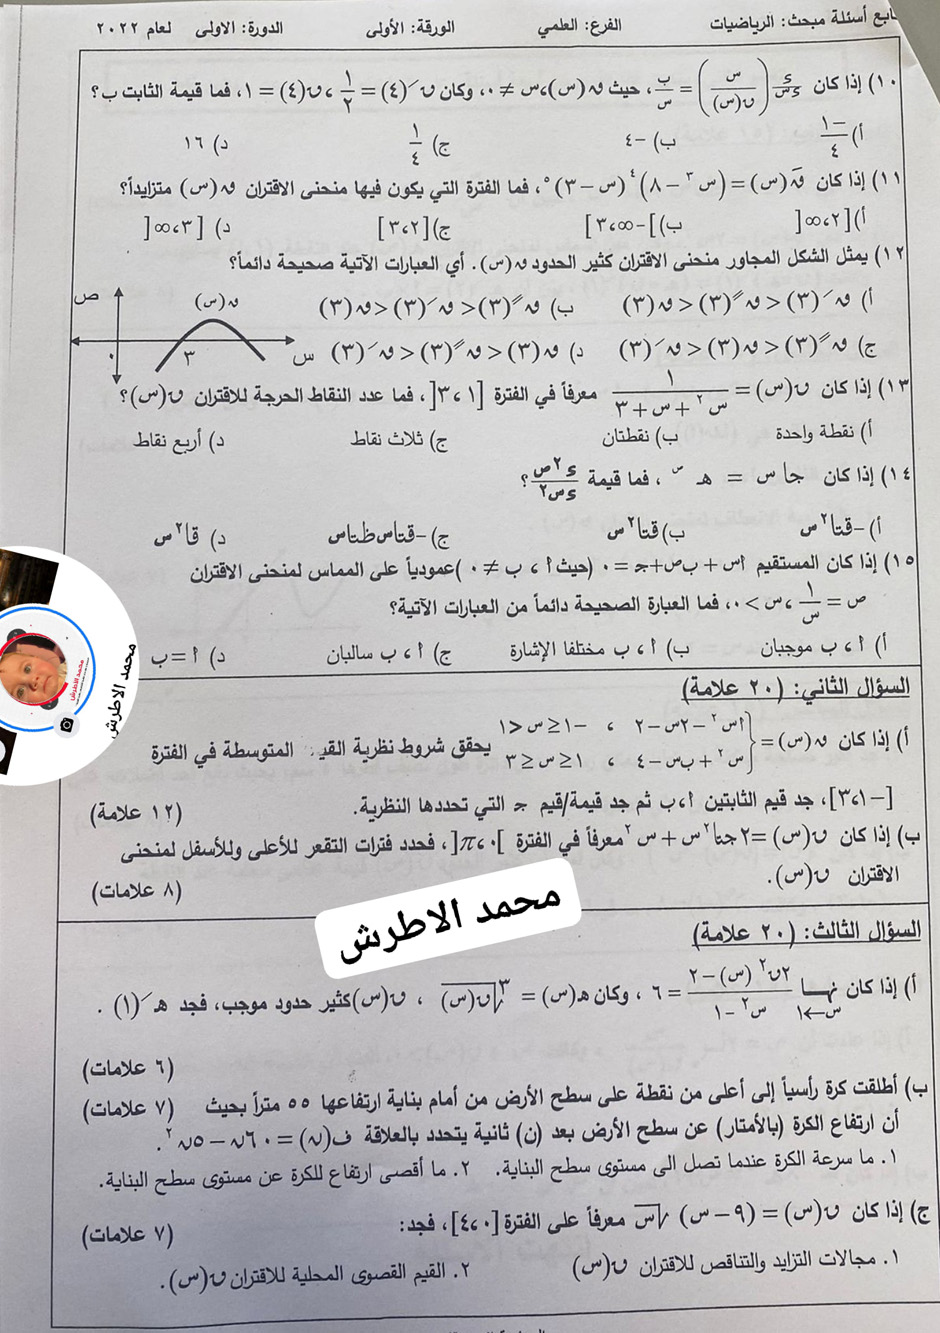 تابع أسئلة مبحث: الرياضيات الفرع: العلمي الورقة: الأولى الدورة: الاولى لعام ٢٠٢٢
١٠) إذا كان ء/ءس (س/ق(س)) = ب/س ، حيث ق(س)، س ≠ ٠، وكان ق´(٤) = ١/٢ ، ق(٤) = ١، فما قيمة الثابت ب؟
أ) -١/٤ ب) -٤ ج) ١/٤ د) ١٦
١١) إذا كان ق´(س) = (س³ - ٨)⁴ (س - ٣)⁵، فما الفترة التي يكون فيها منحنى الاقتران ق(س) متزايداً؟
أ) [٢،∞[ ب) ]-∞،٣] ج) [٢،٣] د) [٣،∞[
١٢) يمثل الشكل المجاور منحنى الاقتران كثير الحدود ق(س). أي العبارات الآتية صحيحة دائماً؟
أ) ق´(٣) < ق´´(٣) < ق(٣) ب) ق´´(٣) < ق´(٣) < ق(٣)
ج) ق´´(٣) < ق(٣) < ق´(٣) د) ق(٣) < ق´´(٣) < ق´(٣)
ص
ق(س)
٠
٣
س
١٣) إذا كان ق(س) = ١/(س² + س + ٣) معرفاً في الفترة [١،٣[، فما عدد النقاط الحرجة للاقتران ق(س)؟
أ) نقطة واحدة ب) نقطتان ج) ثلاث نقاط د) أربع نقاط
١٤) إذا كان جاس = هـ^ص ، فما قيمة ء²ص/ءس² ؟
أ) -قتا²س ب) قتا²س ج) -قتاس ظتاس د) قا²س
١٥) إذا كان المستقيم أس + ب ص + جـ = ٠ (حيث أ ، ب ≠ ٠) عمودياً على المماس لمنحنى الاقتران
ص = ١/س ، س > ٠، فما العبارة الصحيحة دائماً من العبارات الآتية؟
أ) أ ، ب موجبان ب) أ ، ب مختلفا الإشارة ج) أ ، ب سالبان د) أ = ب
السؤال الثاني: (٢٠ علامة)
أ) إذا كان ق(س) = { أس² - ٢س - ٢ ، -١ ≤ س < ١
س² + ب س - ٤ ، ١ ≤ س ≤ ٣ يحقق شروط نظرية المتوسطة في الفترة
[-١،٣]، جد قيم الثابتين أ، ب ثم جد قيمة/قيم جـ التي تحددها النظرية. (١٢ علامة)
ب) إذا كان ق(س) = ٢جتا²س + س² معرفاً في الفترة ]٠،π[، فحدد فترات التقعر للأعلى وللأسفل لمنحنى
الاقتران ق(س). (٨ علامات)
محمد الاطرش
محمد الاطرش
السؤال الثالث: (٢٠ علامة)
أ) إذا كان نهــا س←١ (٢ق²(س) - ٢)/(س² - ١) = ٦ ، وكان هـ(س) = ∛ق(س) ، ق(س) كثير حدود موجب، فجد هـ´(١).
(٦ علامات)
ب) أطلقت كرة رأسياً إلى أعلى من نقطة على سطح الأرض من أمام بناية ارتفاعها ٥٥ متراً بحيث (٧ علامات)
أن ارتفاع الكرة (بالأمتار) عن سطح الأرض بعد (ن) ثانية يتحدد بالعلاقة ف(ن) = ٦٠ن - ٥ن².
١. ما سرعة الكرة عندما تصل الى مستوى سطح البناية. ٢. ما أقصى ارتفاع للكرة عن مستوى سطح البناية.
ج) إذا كان ق(س) = (٩ - س)√س معرفاً على الفترة [٠،٤]، فجد: (٧ علامات)
١. مجالات التزايد والتناقص للاقتران ق(س) ٢. القيم القصوى المحلية للاقتران ق(س).